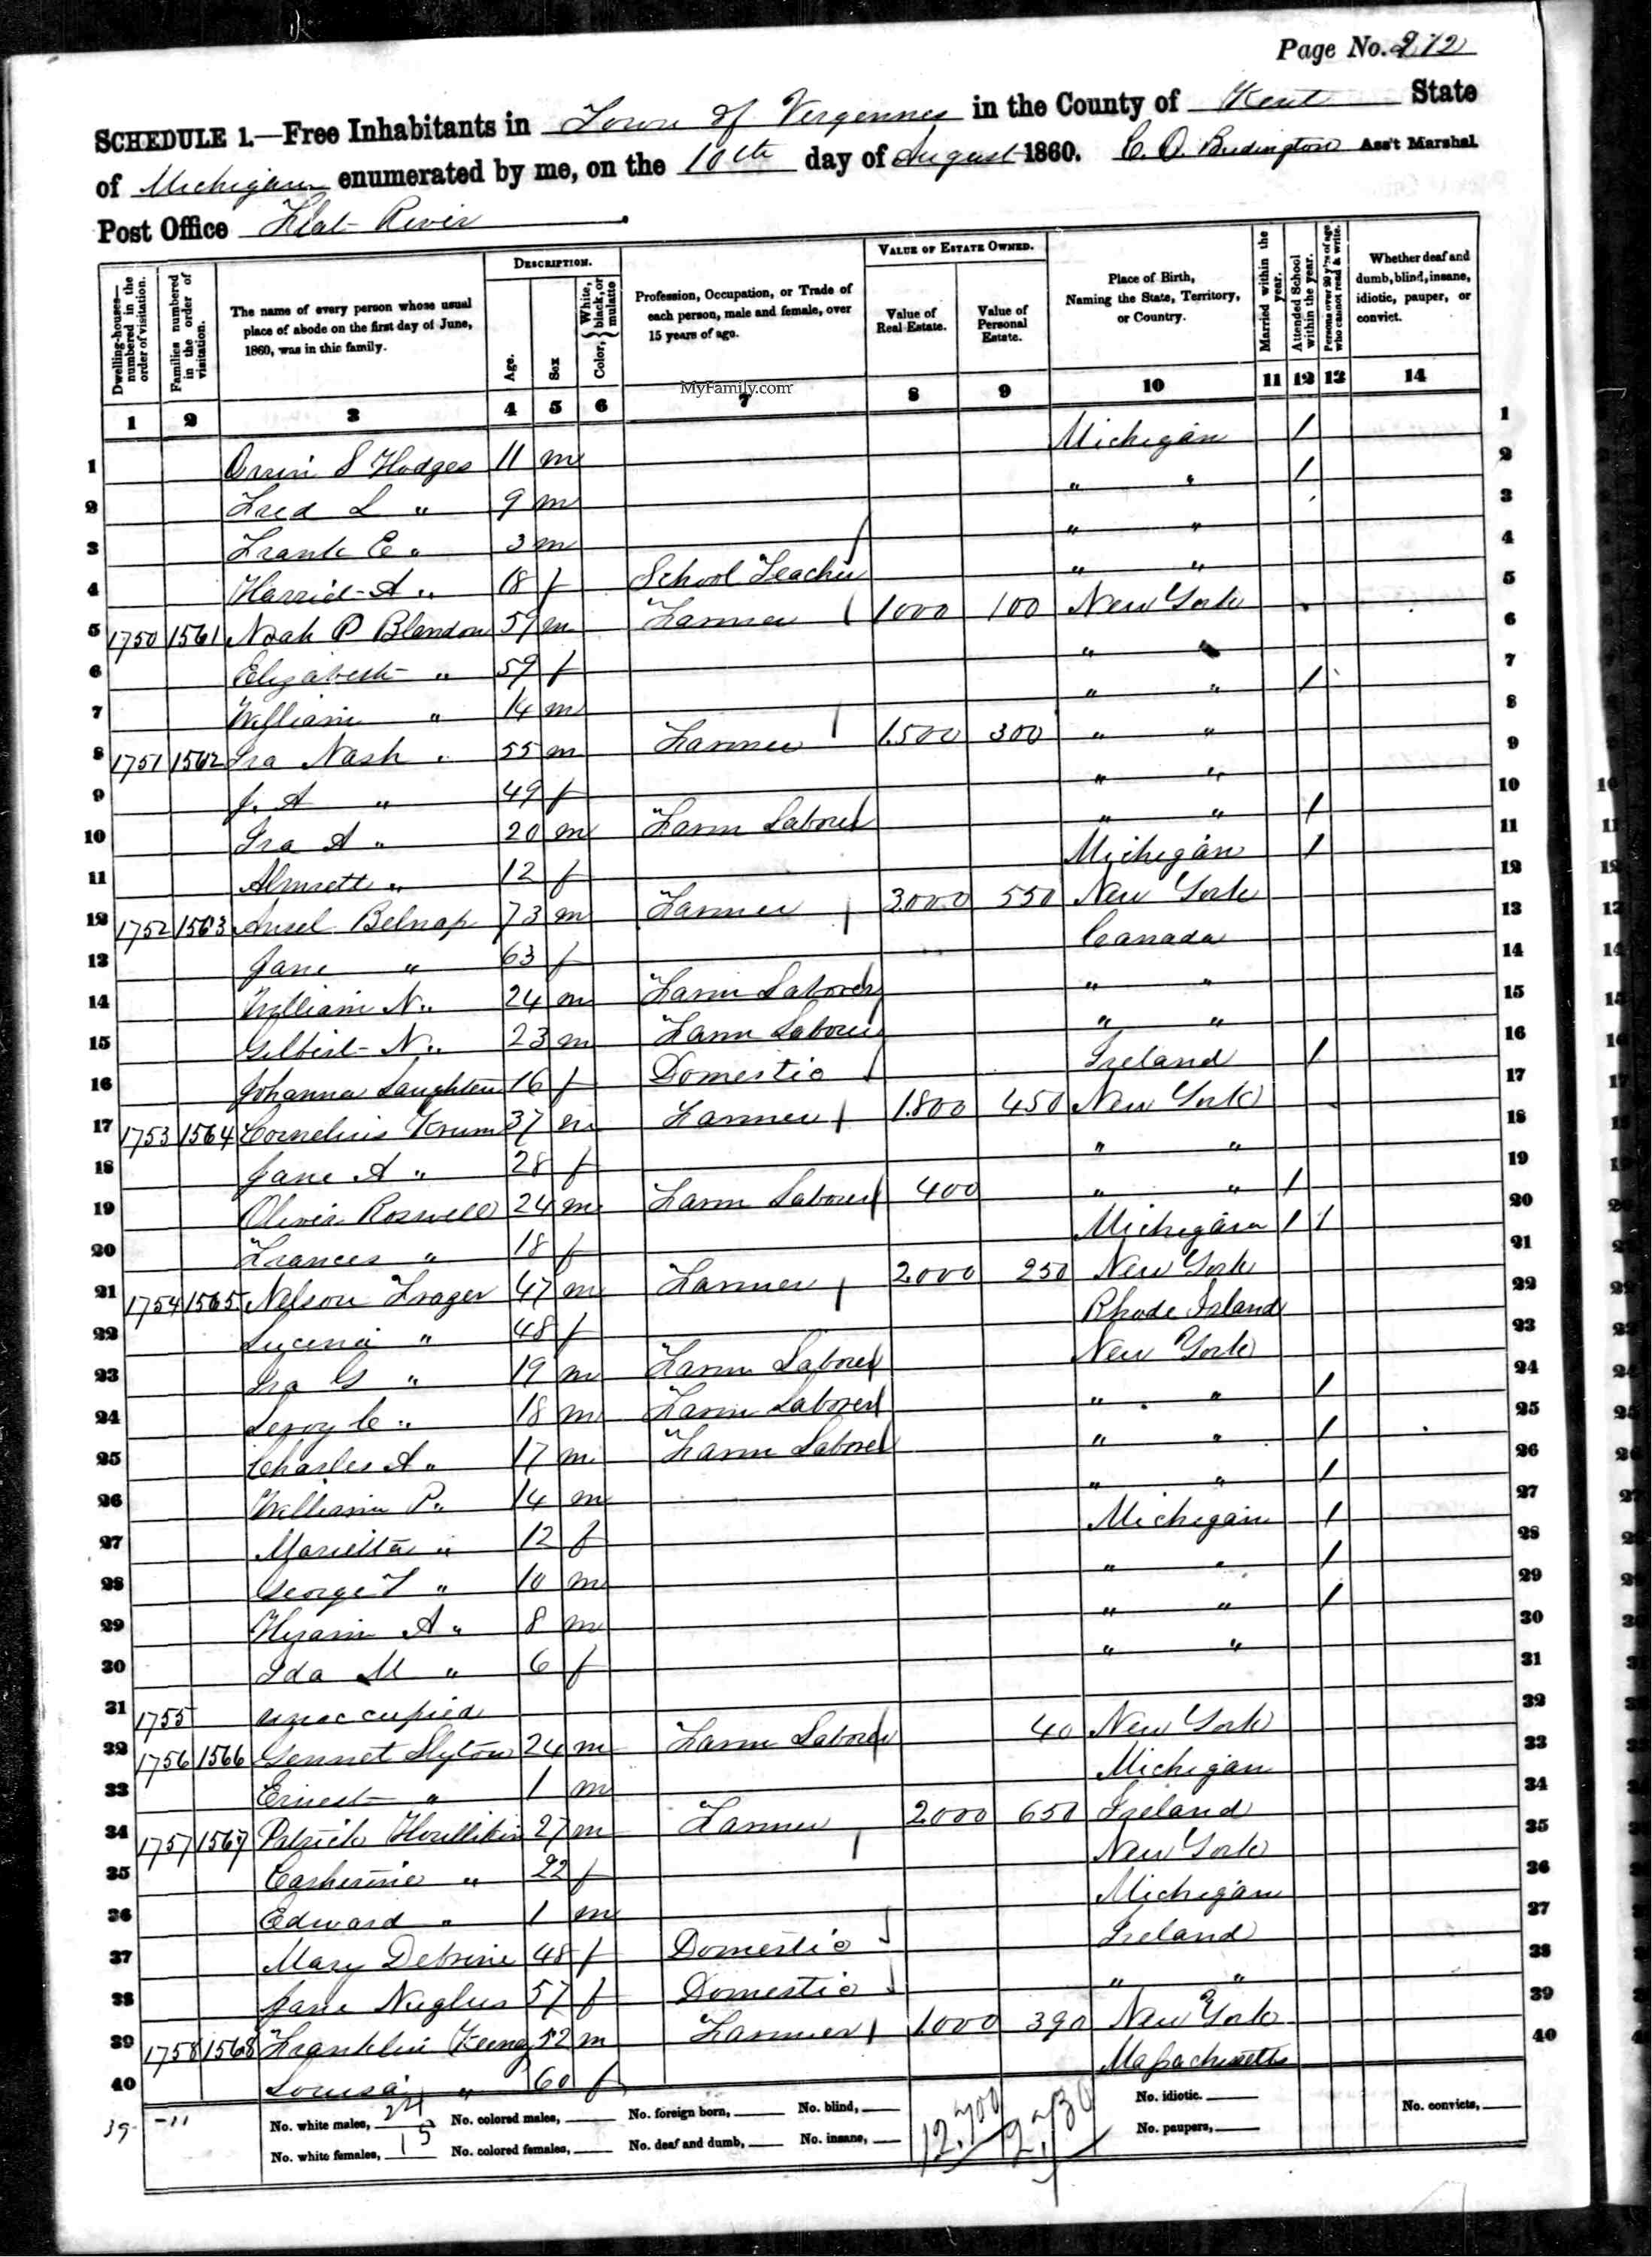 Page No. 212
SCHEDULE 1.—Free Inhabitants in Town of Vergennes in the County of Kent State
of Michigan enumerated by me, on the 10th day of August 1860. C. O. Budington Ass't Marshal
Post Office Flat River
DESCRIPTION. VALUE OF ESTATE OWNED.
Dwelling-houses—numbered in the order of visitation.
Families numbered in the order of visitation.
The name of every person whose usual place of abode on the first day of June, 1860, was in this family.
Age.
Sex
Color, { White, black, or mulatto
Profession, Occupation, or Trade of each person, male and female, over 15 years of age.
Value of Real Estate.
Value of Personal Estate.
Place of Birth, Naming the State, Territory, or Country.
Married within the year.
Attended School within the year.
Persons over 20 y'rs of age who cannot read & write.
Whether deaf and dumb, blind, insane, idiotic, pauper, or convict.
MyFamily.com
1 2 3 4 5 6 7 8 9 10 11 12 13 14
1 S Hodges 11 m Michigan / 1
2 Fred L " 9 m " " / 2
3 Frank E " 3 m " " 3
4 A " 18 f School Teacher " " 4
5 1750 1561 Noah P 57 m Farmer 1000 100 New York 5
6 Elizabeth " 59 f " " 6
7 William " 14 m " " / 7
8 1751 1562 Ira Nash 55 m Farmer 1500 300 " " 8
9 J. A " 49 f " " 9
10 Ira A " 20 m Farm Laborer " " / 10
11 " 12 f Michigan / 11
12 1752 1563 Ansel Belnap 73 m Farmer 3000 550 New York 12
13 Jane " 63 f Canada 13
14 William N " 24 m Farm Laborer " " 14
15 Gilbert N " 23 m Farm Laborer " " 15
16 Johanna 16 f Domestic Ireland / 16
17 1753 1564 Cornelius Krum 37 m Farmer 1800 450 New York 17
18 Jane A " 28 f " " 18
19 Oliver Roswell 24 m Farm Laborer 400 " " / 19
20 Frances " 18 f Michigan / / 20
21 1754 1565 Nelson 47 m Farmer 2000 250 New York 21
22 Lucena " 48 f Rhode Island 22
23 Ira G " 19 m Farm Laborer New York 23
24 Leroy C " 18 m Farm Laborer " " / 24
25 Charles A " 17 m Farm Laborer " " / 25
26 William P " 14 m " " / 26
27 Marietta " 12 f Michigan / 27
28 George T " 10 m " " / 28
29 Hyram A " 8 m " " / 29
30 Ida M " 6 f " " 30
31 1755 unoccupied 31
32 1756 1566 Slyton 24 m Farm Laborer 40 New York 32
33 Ernest " 1 m Michigan 33
34 1757 1567 Patrick 27 m Farmer 2000 650 Ireland 34
35 Catherine " 22 f New York 35
36 Edward " 1 m Michigan 36
37 Mary 48 f Domestic Ireland 37
38 Jane 57 f Domestic " " 38
39 1758 1568 Franklin 52 m Farmer 1000 390 New York 39
40 Louisa " 60 f Massachusetts 40
39 - 11 No. white males, 24 No. colored males, No. foreign born, No. blind, 12,700 2,730 No. idiotic. No. convicts,
No. white females, 15 No. colored females, No. deaf and dumb, No. insane, No. paupers,